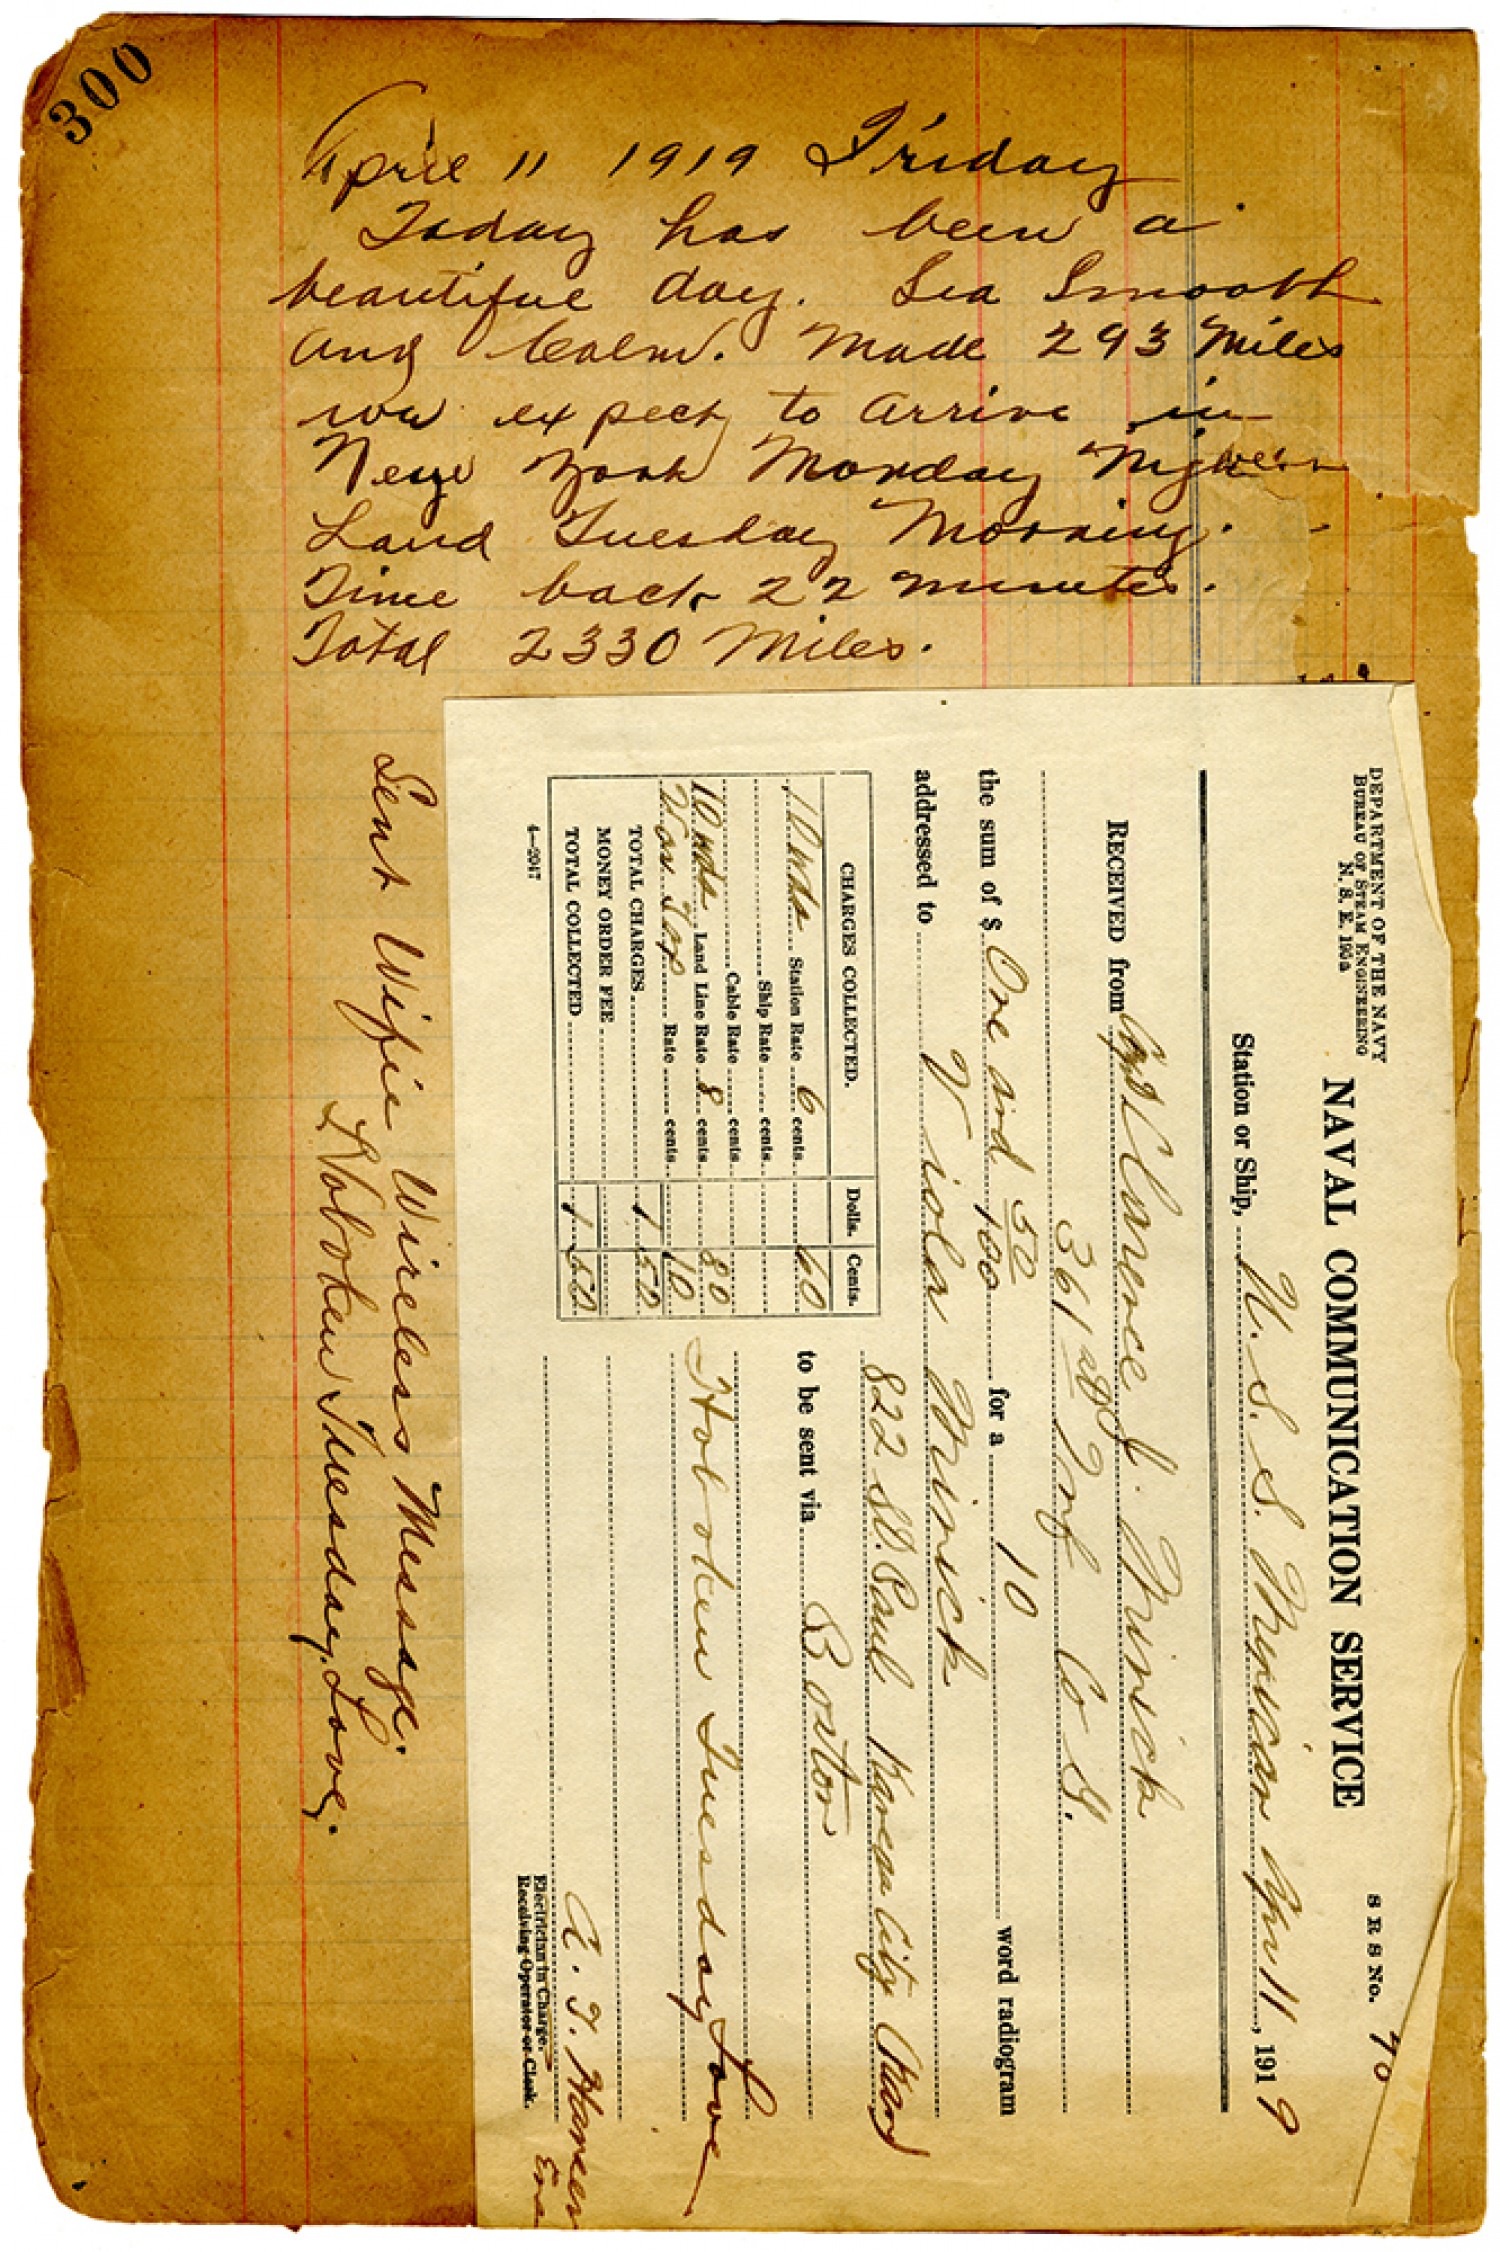 300
April 11 1919 Friday
Today has been a
beautiful day. Sea Smooth
and Calm. Made 293 Miles
we expect to arrive in
New York Monday Night
Land Tuesday Morning.
Time back 22 minutes.
Total 2330 Miles.
DEPARTMENT OF THE NAVY
BUREAU OF STEAM ENGINEERING
N. S. E. 195a
S R S No. 70
NAVAL COMMUNICATION SERVICE
Station or Ship, U. S. S. Mexican Apr 11, 1919
RECEIVED from Capt Clarence J. Minick
361 Inf Co G.
the sum of $ One and 50/100 for a 10 word radiogram
addressed to Viola Minick
822 St. Paul Kansas City Kans
to be sent via Boston
Hoboken Tuesday Love
CHARGES COLLECTED. Dolls. Cents.
10 wds Station Rate 6 cents 60
Ship Rate cents
Cable Rate cents
10 wds Land Line Rate 8 cents 80
War Tax Rate cents 10
TOTAL CHARGES 1 50
MONEY ORDER FEE
TOTAL COLLECTED 1 50
4—2047
A. T. Hansen
Electrician in Charge.
Receiving Operator or Clerk.
Sent Wifie Wireless Message.
Hoboken Tuesday. Love.